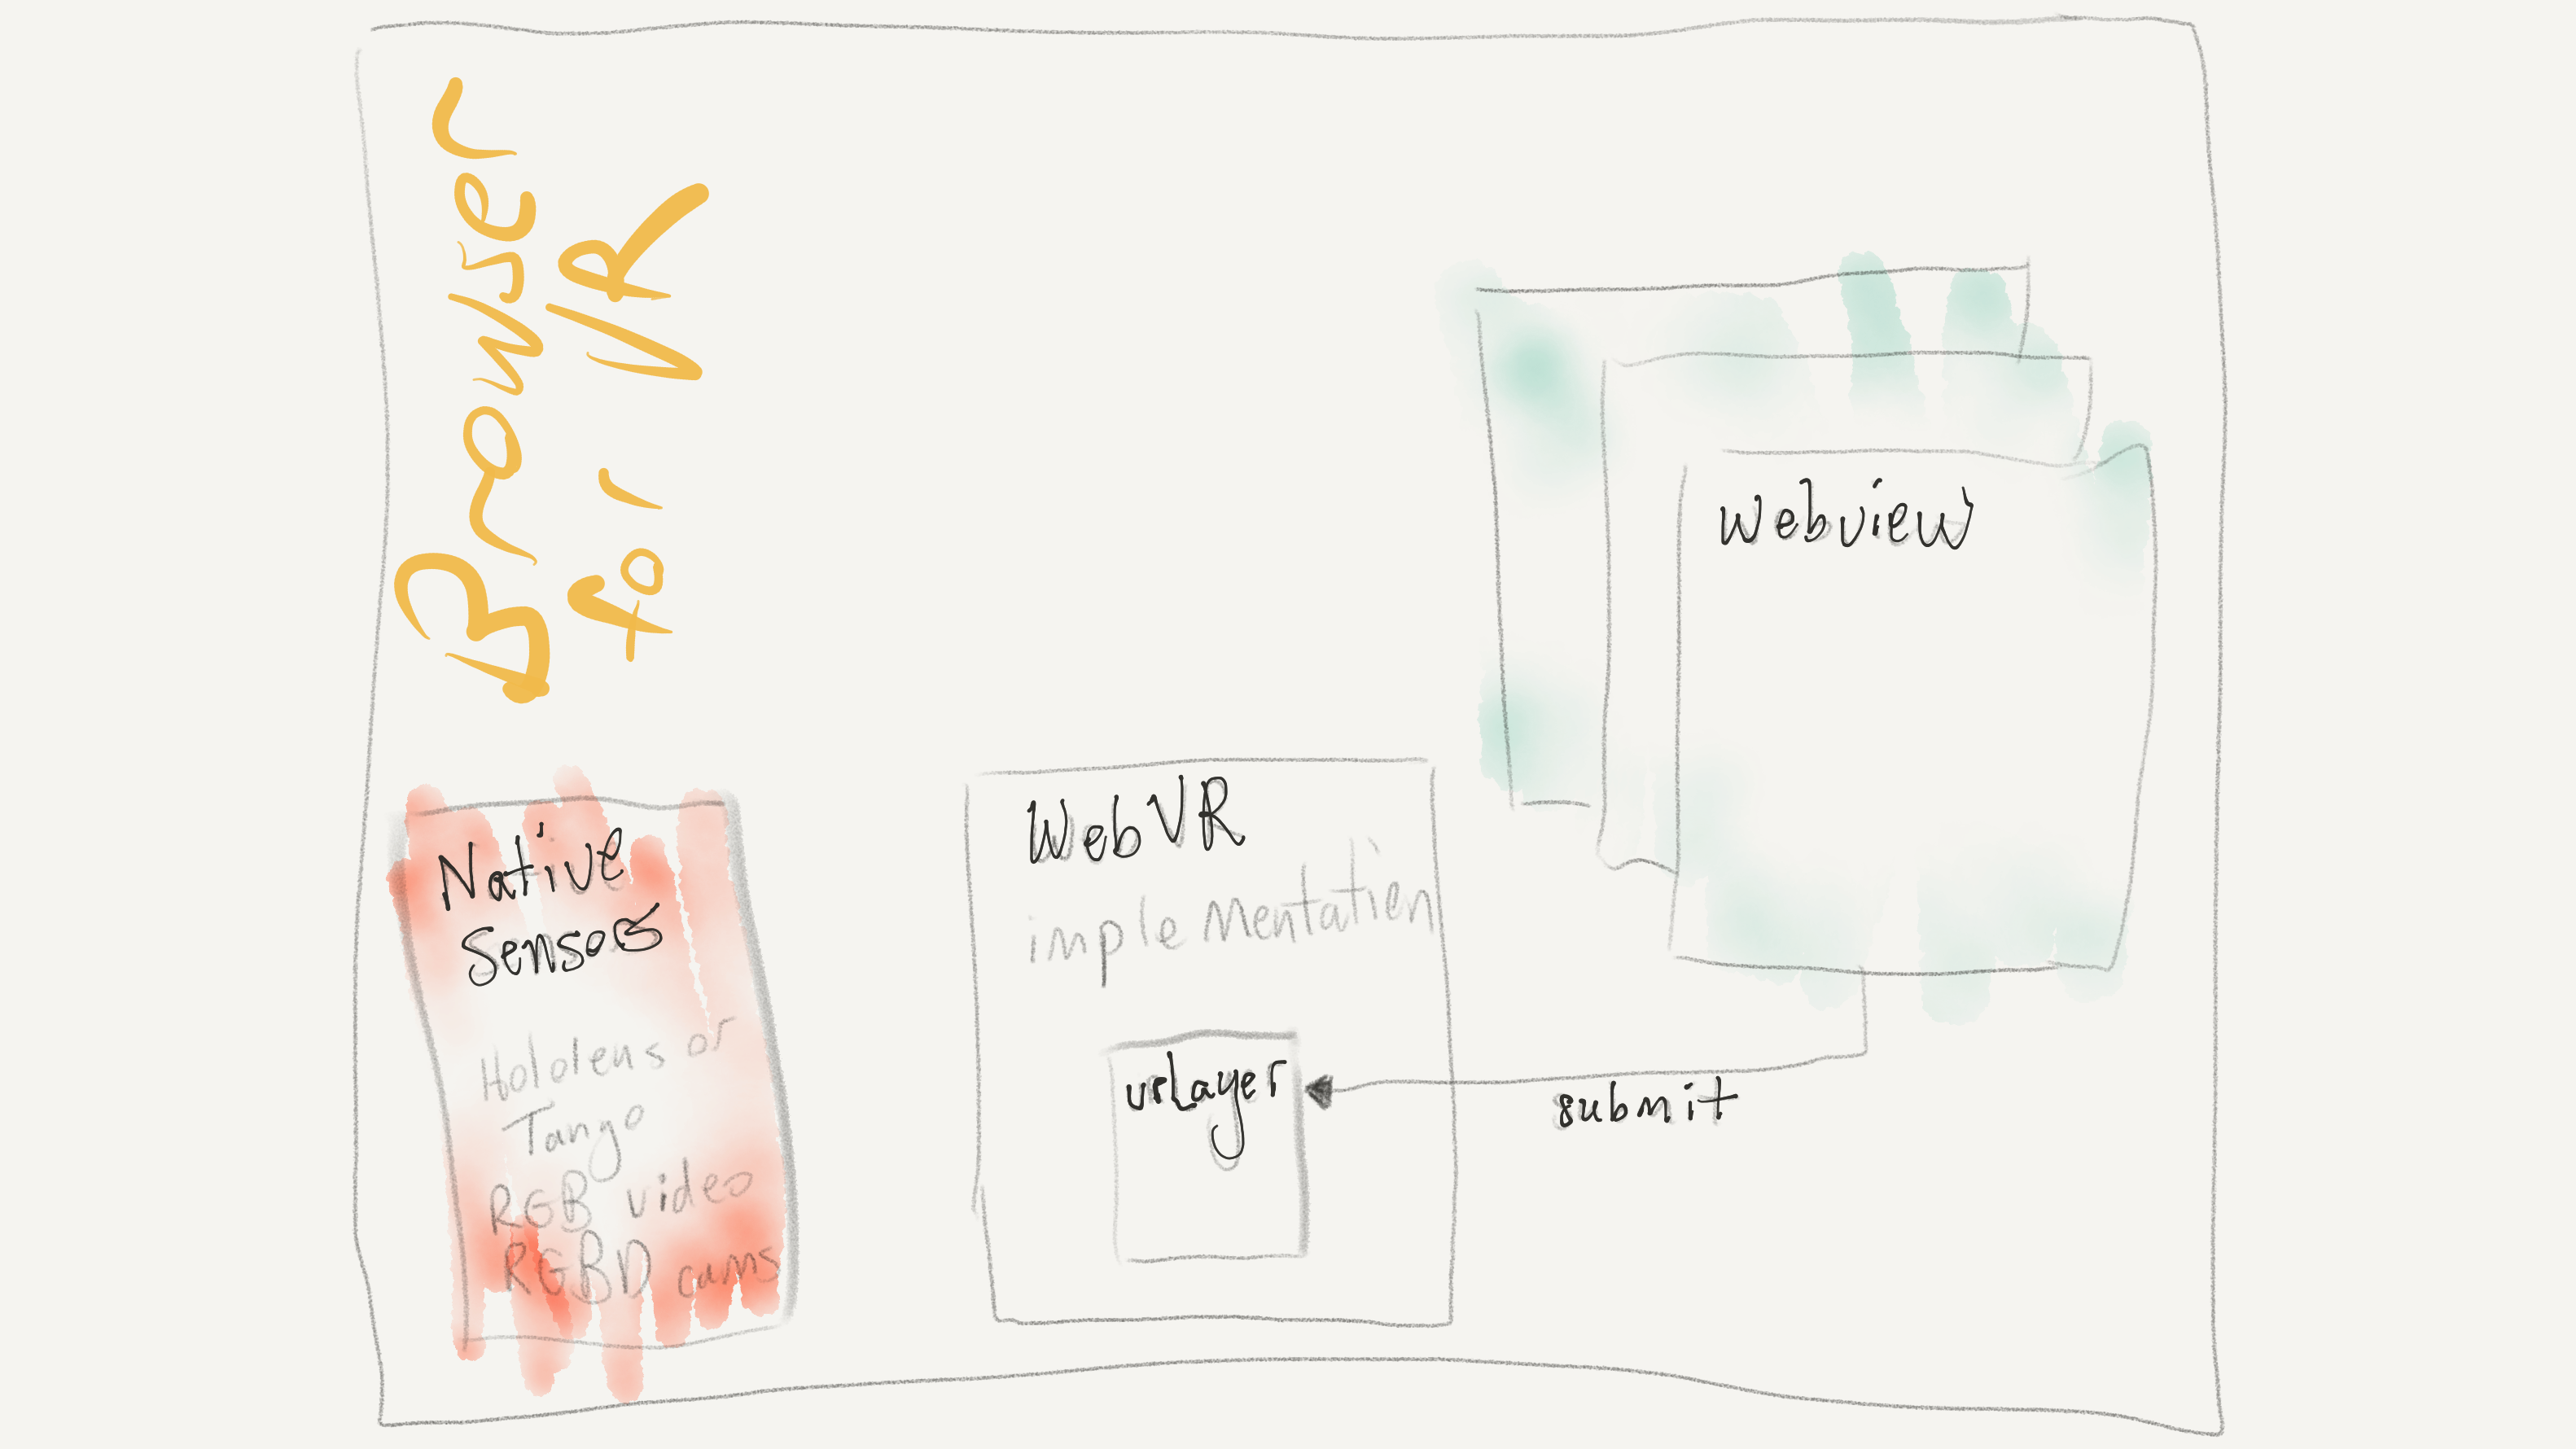 Browser
for VR
Webview
Native
Sensors
Hololens or
Tango
RGB video
RGBD cams
WebVR
implementation
vrLayer
submit